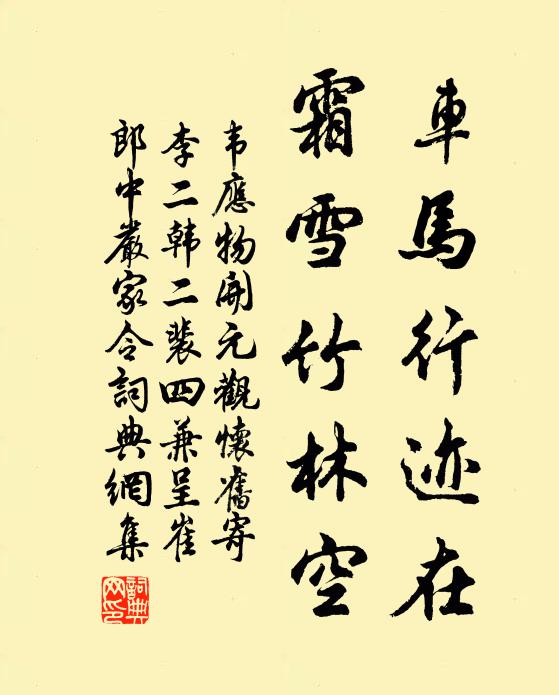 車馬行迹在
霜雪竹林空
韦應物開元觀懷舊寄
李二韩二裴四兼呈崔
郎中嚴家令詞典網集
詞典
网印